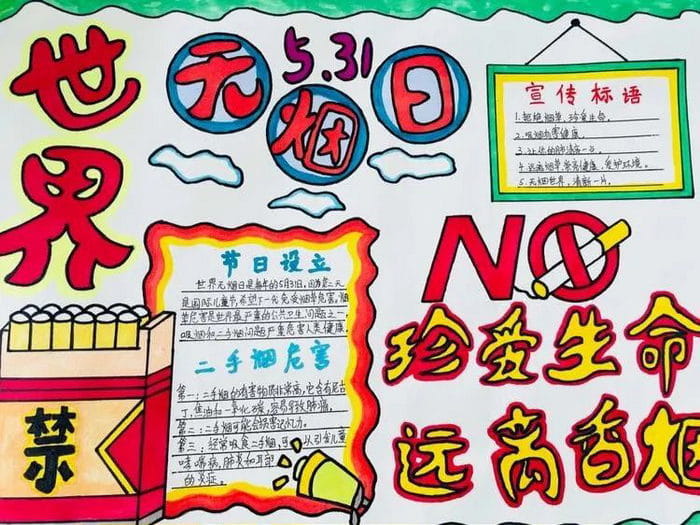 世界
无烟日
5.31
宣传标语
1.拒绝烟草、珍爱生命。
2.吸烟有害健康。
3.让你的肺清新一点。
4.远离烟草,崇尚健康,爱护环境。
5.无烟世界,清新一片。
节日设立
世界无烟日是每年的5月31日,因为第二天
是国际儿童节,希望下一代免受烟草危害,烟
草危害是世界最严重的公共卫生问题之一,
吸烟和二手烟问题严重危害人类健康。
二手烟危害
第一:二手烟的有害物质非常高,它含有尼古
丁、焦油和一氧化碳,容易导致肺癌。
第二:二手烟可能会损害记忆力。
第三:经常吸食二手烟,可以引合儿童
哮喘病,肺炎和耳部
的炎症。
禁
NO
珍爱生命
远离香烟